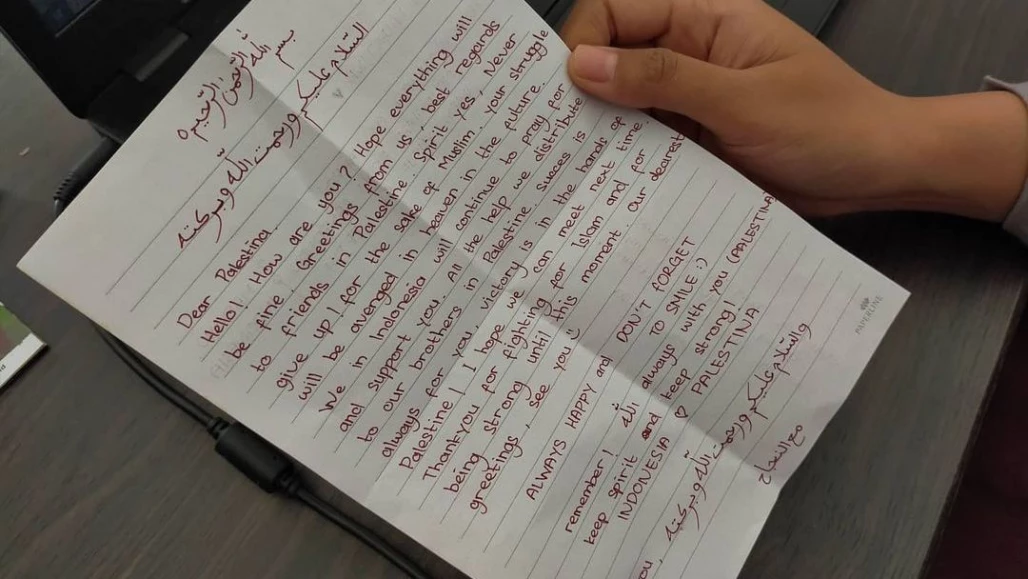 بسم الله الرحمن الرحيم ○
السلام عليكم ورحمت الله وبركته
Dear Palestina.
Hello! How are you? Hope everything will
be fine. Greetings from us, best regards
to friends in Palestine. Spirit yes, Never
give up! for the sake of Muslim. your struggle
will be avenged in heaven in the future.
We in Indonesia will continue to pray for
and support you. All the help we distribute
to our brothers in Palestine. Succes is
always for you, victory is in the hands of
Palestine! I hope we can meet next time.
Thankyou for fighting for Islam and for
being strong until this moment. our dearest
greetings, see you"
ALWAYS HAPPY and DON'T FORGET
TO SMILE :)
remember! الله always with you (PALESTINA
keep spirit and keep strong!
INDONESIA ♡ PALESTINA
والسلام عليكم ورحمت الله وبركته
مع النجاح
PAPERLINE